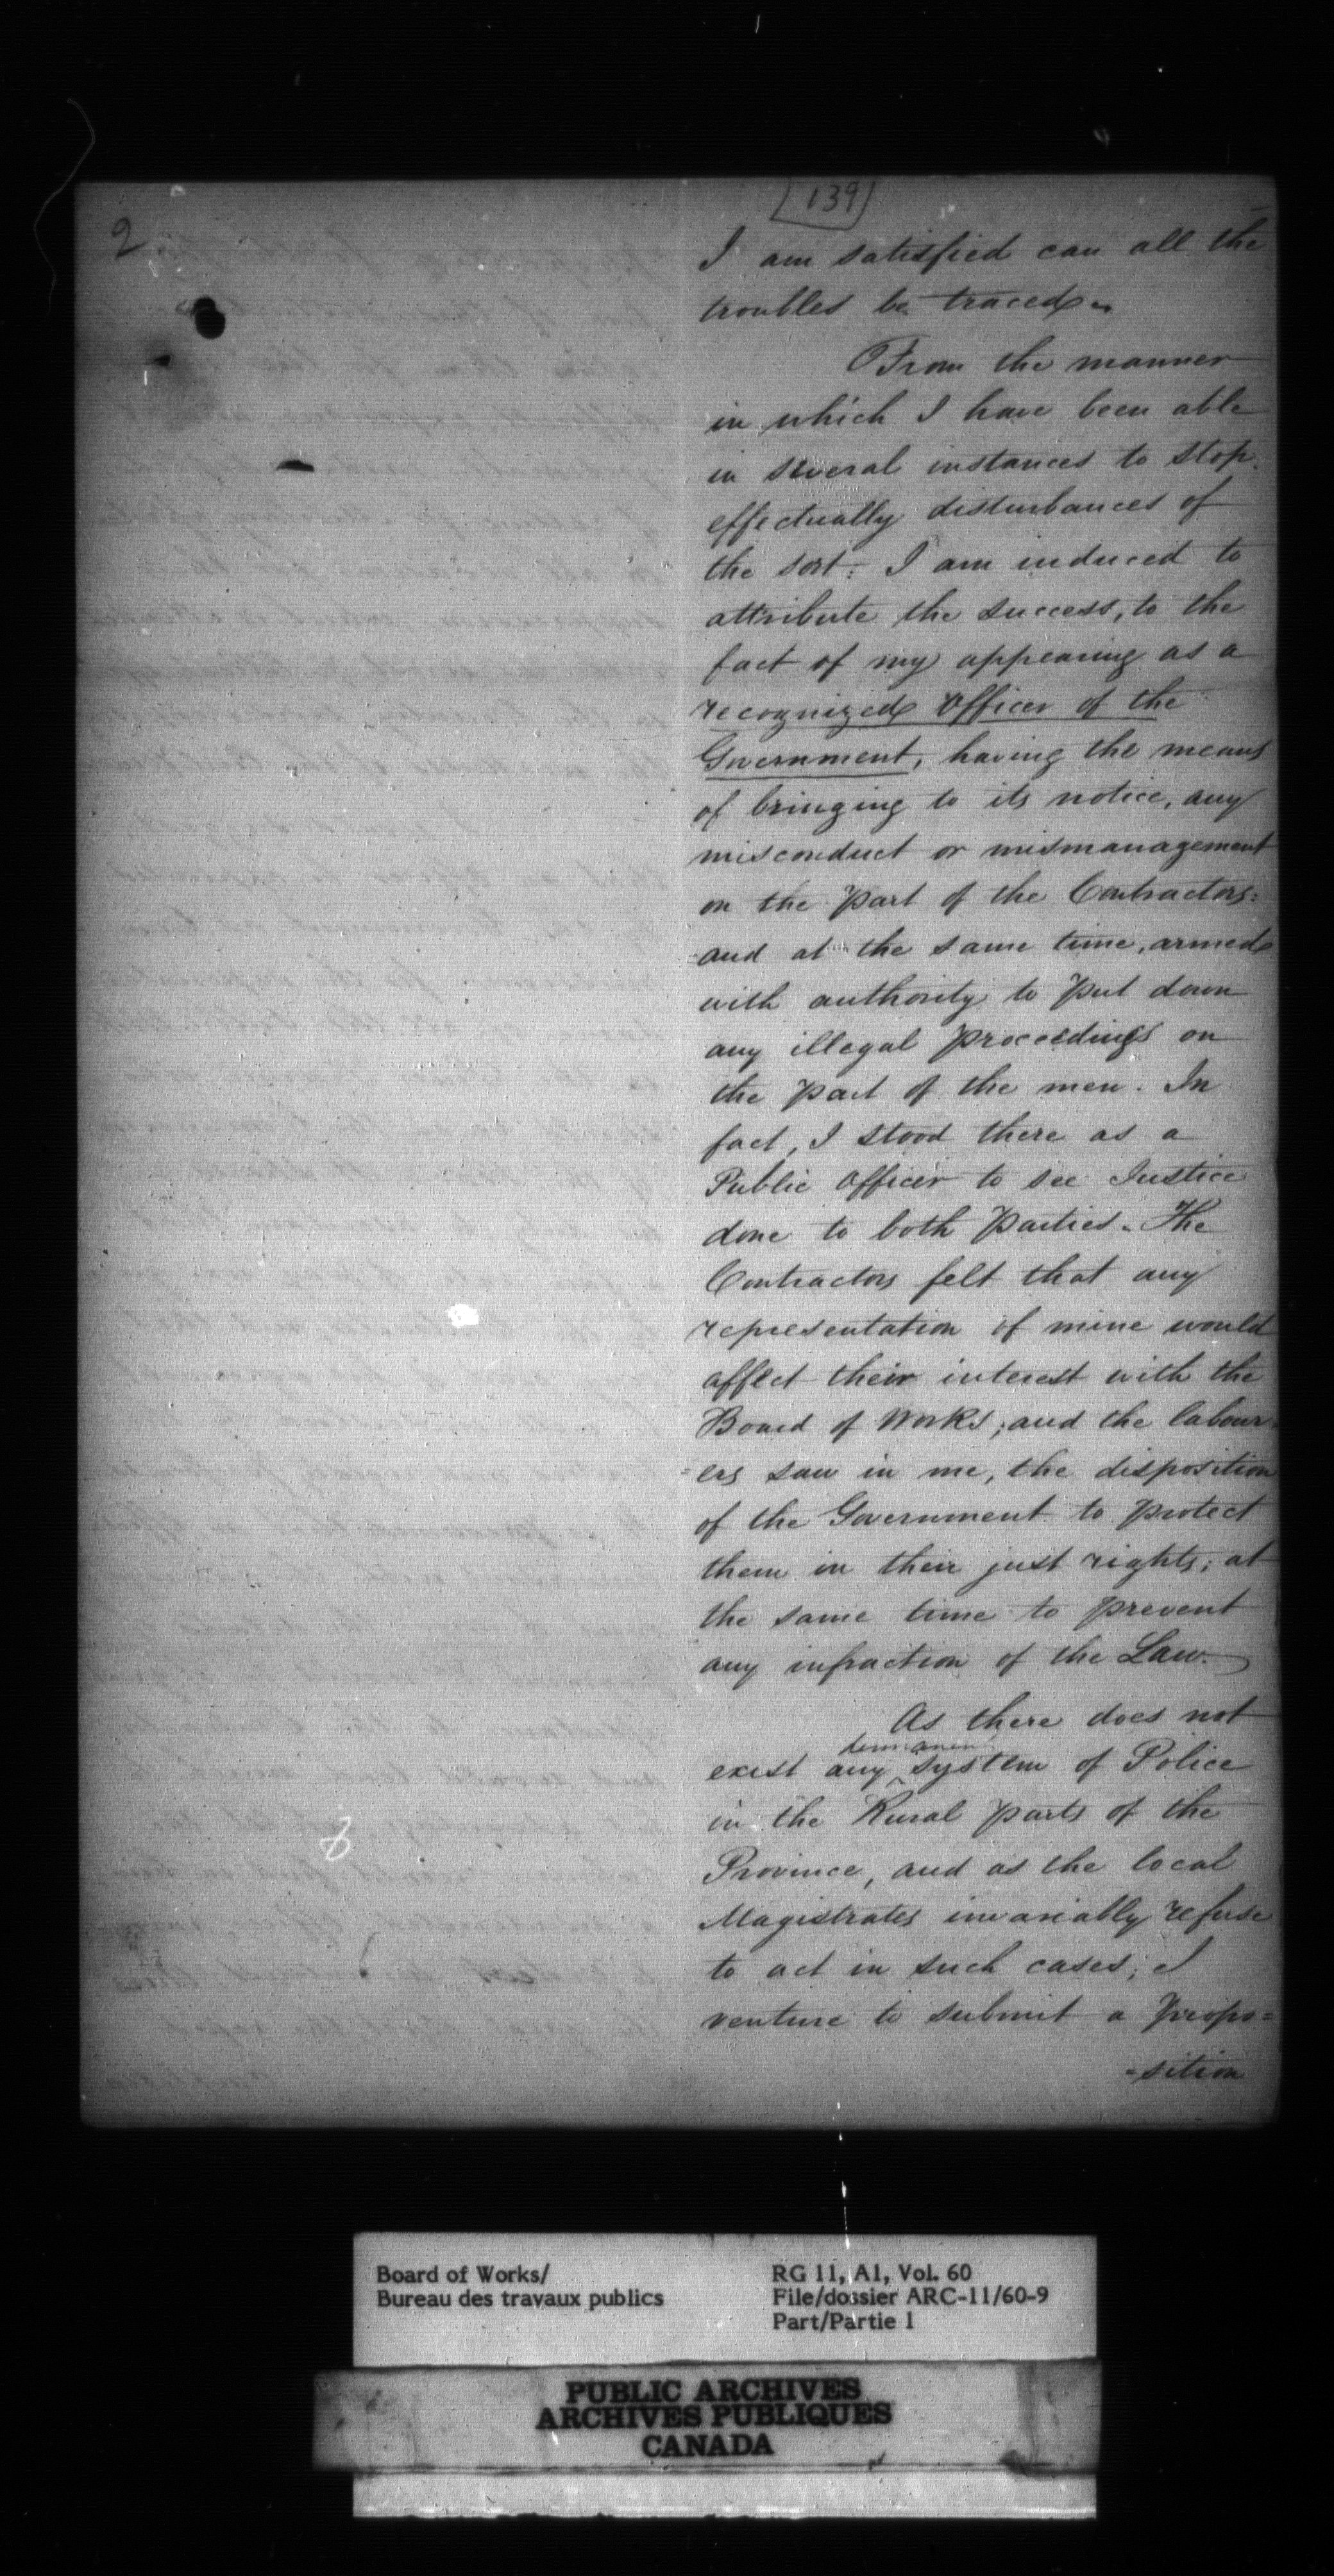 139
2
I am satisfied can all the
troubles be traced.
From the manner
in which I have been able
in several instances to stop
effectually disturbances of
the sort: I am induced to
attribute the success, to the
fact of my appearing as a
recognized Officer of the
Government, having the means
of bringing to its notice, any
misconduct or mismanagement
on the part of the Contractors:
and at the same time, armed
with authority to put down
any illegal proceedings on
the part of the men. In
fact, I stood there as a
Public Officer to see Justice
done to both Parties. The
Contractors felt that any
representation of mine would
affect their interest with the
Board of Works; and the labour=
=ers saw in me, the disposition
of the Government to protect
them in their just rights; at
the same time to prevent
any infraction of the Law.
As there does not
permanent
exist any system of Police
in the Rural parts of the
Province, and as the local
Magistrates invariably refuse
to act in such cases; I
venture to submit a propo=
=sition
8
Board of Works/
Bureau des travaux publics
RG 11, A1, Vol. 60
File/dossier ARC-11/60-9
Part/Partie 1
PUBLIC ARCHIVES
ARCHIVES PUBLIQUES
CANADA